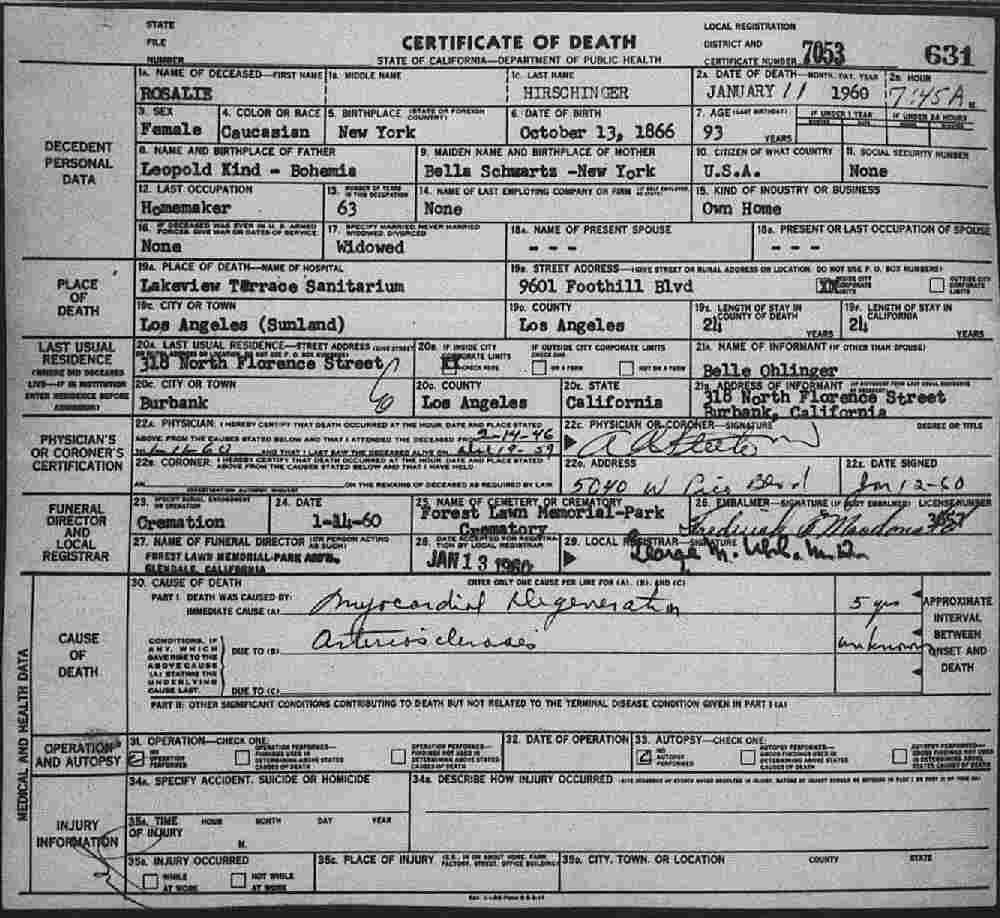 STATE
FILE
NUMBER
CERTIFICATE OF DEATH
STATE OF CALIFORNIA—DEPARTMENT OF PUBLIC HEALTH
LOCAL REGISTRATION
DISTRICT AND
CERTIFICATE NUMBER 7053
631
DECEDENT
PERSONAL
DATA
1A. NAME OF DECEASED—FIRST NAME
ROSALIE
1B. MIDDLE NAME
1C. LAST NAME
HIRSCHINGER
2A. DATE OF DEATH—MONTH, DAY, YEAR
JANUARY 11 1960
2B. HOUR
7:45 A M.
3. SEX
Female
4. COLOR OR RACE
Caucasian
5. BIRTHPLACE (STATE OR FOREIGN COUNTRY)
New York
6. DATE OF BIRTH
October 13, 1866
7. AGE (LAST BIRTHDAY)
93 YEARS
IF UNDER 1 YEAR
IF UNDER 24 HOURS
8. NAME AND BIRTHPLACE OF FATHER
Leopold Kind - Bohemia
9. MAIDEN NAME AND BIRTHPLACE OF MOTHER
Bella Schwartz -New York
10. CITIZEN OF WHAT COUNTRY
U.S.A.
11. SOCIAL SECURITY NUMBER
None
12. LAST OCCUPATION
Homemaker
13. NUMBER OF YEARS IN THIS OCCUPATION
63
14. NAME OF LAST EMPLOYING COMPANY OR FIRM
None
15. KIND OF INDUSTRY OR BUSINESS
Own Home
16. IF DECEASED WAS EVER IN U. S. ARMED FORCES, GIVE WAR OR DATES OF SERVICE
None
17. SPECIFY MARRIED, NEVER MARRIED, WIDOWED, DIVORCED
Widowed
18A. NAME OF PRESENT SPOUSE
- - -
18B. PRESENT OR LAST OCCUPATION OF SPOUSE
- - -
PLACE
OF
DEATH
19A. PLACE OF DEATH—NAME OF HOSPITAL
Lakeview Terrace Sanitarium
19B. STREET ADDRESS—(GIVE STREET OR RURAL ADDRESS OR LOCATION. DO NOT USE P. O. BOX NUMBERS)
9601 Foothill Blvd
INSIDE CITY CORPORATE LIMITS
OUTSIDE CITY CORPORATE LIMITS
19C. CITY OR TOWN
Los Angeles (Sunland)
19D. COUNTY
Los Angeles
19E. LENGTH OF STAY IN COUNTY OF DEATH
24 YEARS
19F. LENGTH OF STAY IN CALIFORNIA
24 YEARS
LAST USUAL
RESIDENCE
(WHERE DID DECEASED
LIVE—IF IN INSTITUTION
ENTER RESIDENCE BEFORE
ADMISSION)
20A. LAST USUAL RESIDENCE—STREET ADDRESS
318 North Florence Street
20B. IF INSIDE CITY CORPORATE LIMITS
CHECK HERE
IF OUTSIDE CITY CORPORATE LIMITS
CHECK ONE
ON A FARM
NOT ON A FARM
21A. NAME OF INFORMANT (IF OTHER THAN SPOUSE)
Belle Ohlinger
20C. CITY OR TOWN
Burbank
20D. COUNTY
Los Angeles
20E. STATE
California
21B. ADDRESS OF INFORMANT
318 North Florence Street
Burbank, California
PHYSICIAN'S
OR CORONER'S
CERTIFICATION
22A. PHYSICIAN: I HEREBY CERTIFY THAT DEATH OCCURRED AT THE HOUR, DATE AND PLACE STATED
ABOVE, FROM THE CAUSES STATED BELOW AND THAT I ATTENDED THE DECEASED FROM 2-14-46
1-11-60 AND THAT I LAST SAW THE DECEASED ALIVE ON
22B. CORONER: I HEREBY CERTIFY THAT DEATH OCCURRED AT THE HOUR, DATE AND PLACE STATED
ABOVE FROM THE CAUSES STATED BELOW AND THAT I HAVE HELD
AN ON THE REMAINS OF DECEASED AS REQUIRED BY LAW
22C. PHYSICIAN OR CORONER—SIGNATURE DEGREE OR TITLE
22D. ADDRESS
5040 W Pico Blvd
22E. DATE SIGNED
Jan 12-60
FUNERAL
DIRECTOR
AND
LOCAL
REGISTRAR
23. SPECIFY BURIAL, ENTOMBMENT OR CREMATION
Cremation
24. DATE
1-14-60
25. NAME OF CEMETERY OR CREMATORY
Forest Lawn Memorial-Park
Crematory
26. EMBALMER—SIGNATURE (IF BODY EMBALMED) LICENSE NUMBER
27. NAME OF FUNERAL DIRECTOR (OR PERSON ACTING AS SUCH)
FOREST LAWN MEMORIAL-PARK ASSN.
GLENDALE, CALIFORNIA
28. DATE ACCEPTED FOR REGISTRATION BY LOCAL REGISTRAR
JAN 13 1960
29. LOCAL REGISTRAR—SIGNATURE
George M. Uhl M.D.
MEDICAL AND HEALTH DATA
CAUSE
OF
DEATH
30. CAUSE OF DEATH
ENTER ONLY ONE CAUSE PER LINE FOR (A), (B), AND (C)
PART I. DEATH WAS CAUSED BY:
IMMEDIATE CAUSE (A) Myocardial Degeneration 5 yrs
CONDITIONS, IF
ANY, WHICH
GAVE RISE TO THE
ABOVE CAUSE
(A) STATING THE
UNDERLYING
CAUSE LAST.
DUE TO (B) Arteriosclerosis unknown
DUE TO (C)
APPROXIMATE
INTERVAL
BETWEEN
ONSET AND
DEATH
PART II: OTHER SIGNIFICANT CONDITIONS CONTRIBUTING TO DEATH BUT NOT RELATED TO THE TERMINAL DISEASE CONDITION GIVEN IN PART I (A)
OPERATION
AND AUTOPSY
31. OPERATION—CHECK ONE:
NO OPERATION PERFORMED
OPERATION PERFORMED—FINDINGS USED IN DETERMINING ABOVE STATED CAUSES OF DEATH
OPERATION PERFORMED—FINDINGS NOT USED IN DETERMINING ABOVE STATED CAUSES OF DEATH
32. DATE OF OPERATION
33. AUTOPSY—CHECK ONE:
NO AUTOPSY PERFORMED
AUTOPSY PERFORMED—FINDINGS USED IN DETERMINING ABOVE STATED CAUSES OF DEATH
AUTOPSY PERFORMED—FINDINGS NOT USED IN DETERMINING ABOVE STATED CAUSES OF DEATH
INJURY
INFORMATION
34A. SPECIFY ACCIDENT, SUICIDE OR HOMICIDE
34B. DESCRIBE HOW INJURY OCCURRED
35A. TIME OF INJURY HOUR MONTH DAY YEAR
M.
35B. INJURY OCCURRED
WHILE AT WORK
NOT WHILE AT WORK
35C. PLACE OF INJURY (E.G., IN OR ABOUT HOME, FARM, FACTORY, STREET, OFFICE BUILDING)
35D. CITY, TOWN, OR LOCATION COUNTY STATE